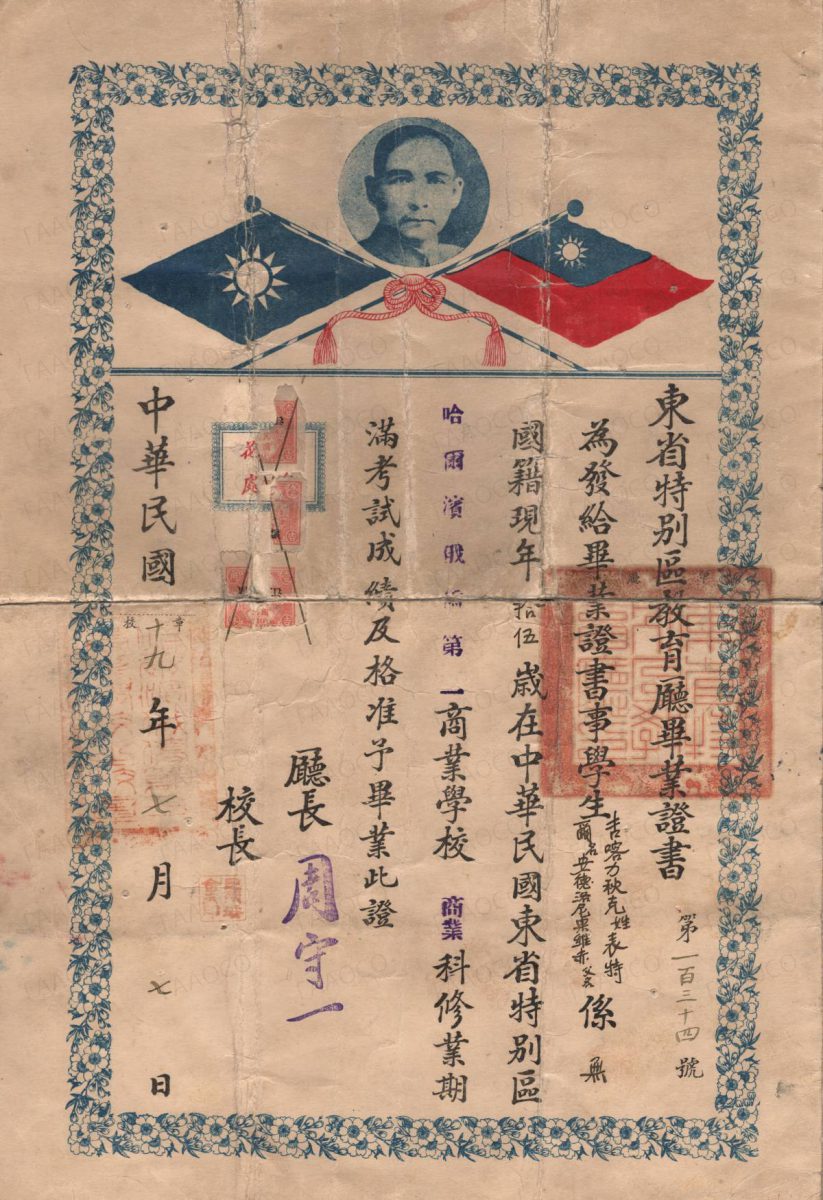 東省特別區教育廳畢業證書
第一百三十四號
為發給畢業證書事學生
吉喀力狄克姓表特
爾名安德
尼果維赤父名
係無
國籍現年拾伍歲在中華民國東省特別區
哈爾濱俄僑第一商業學校商業科修業期
滿考試成績及格准予畢業此證
廳長周守一
校長
花
處
中華民國十九年七月七日